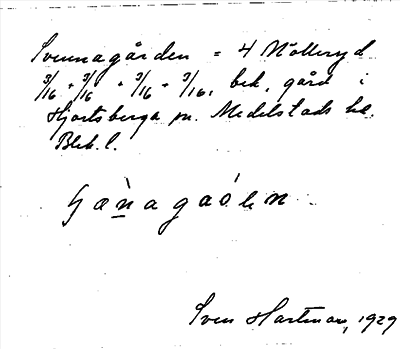 Svennagården = 4 Mölleryd
3/16 + 3/16 + 3/16 + 3/16, bek. gård i
Hjortsberga sn. Medelstads hd.
Blek. l.
Sven Hartman, 1929